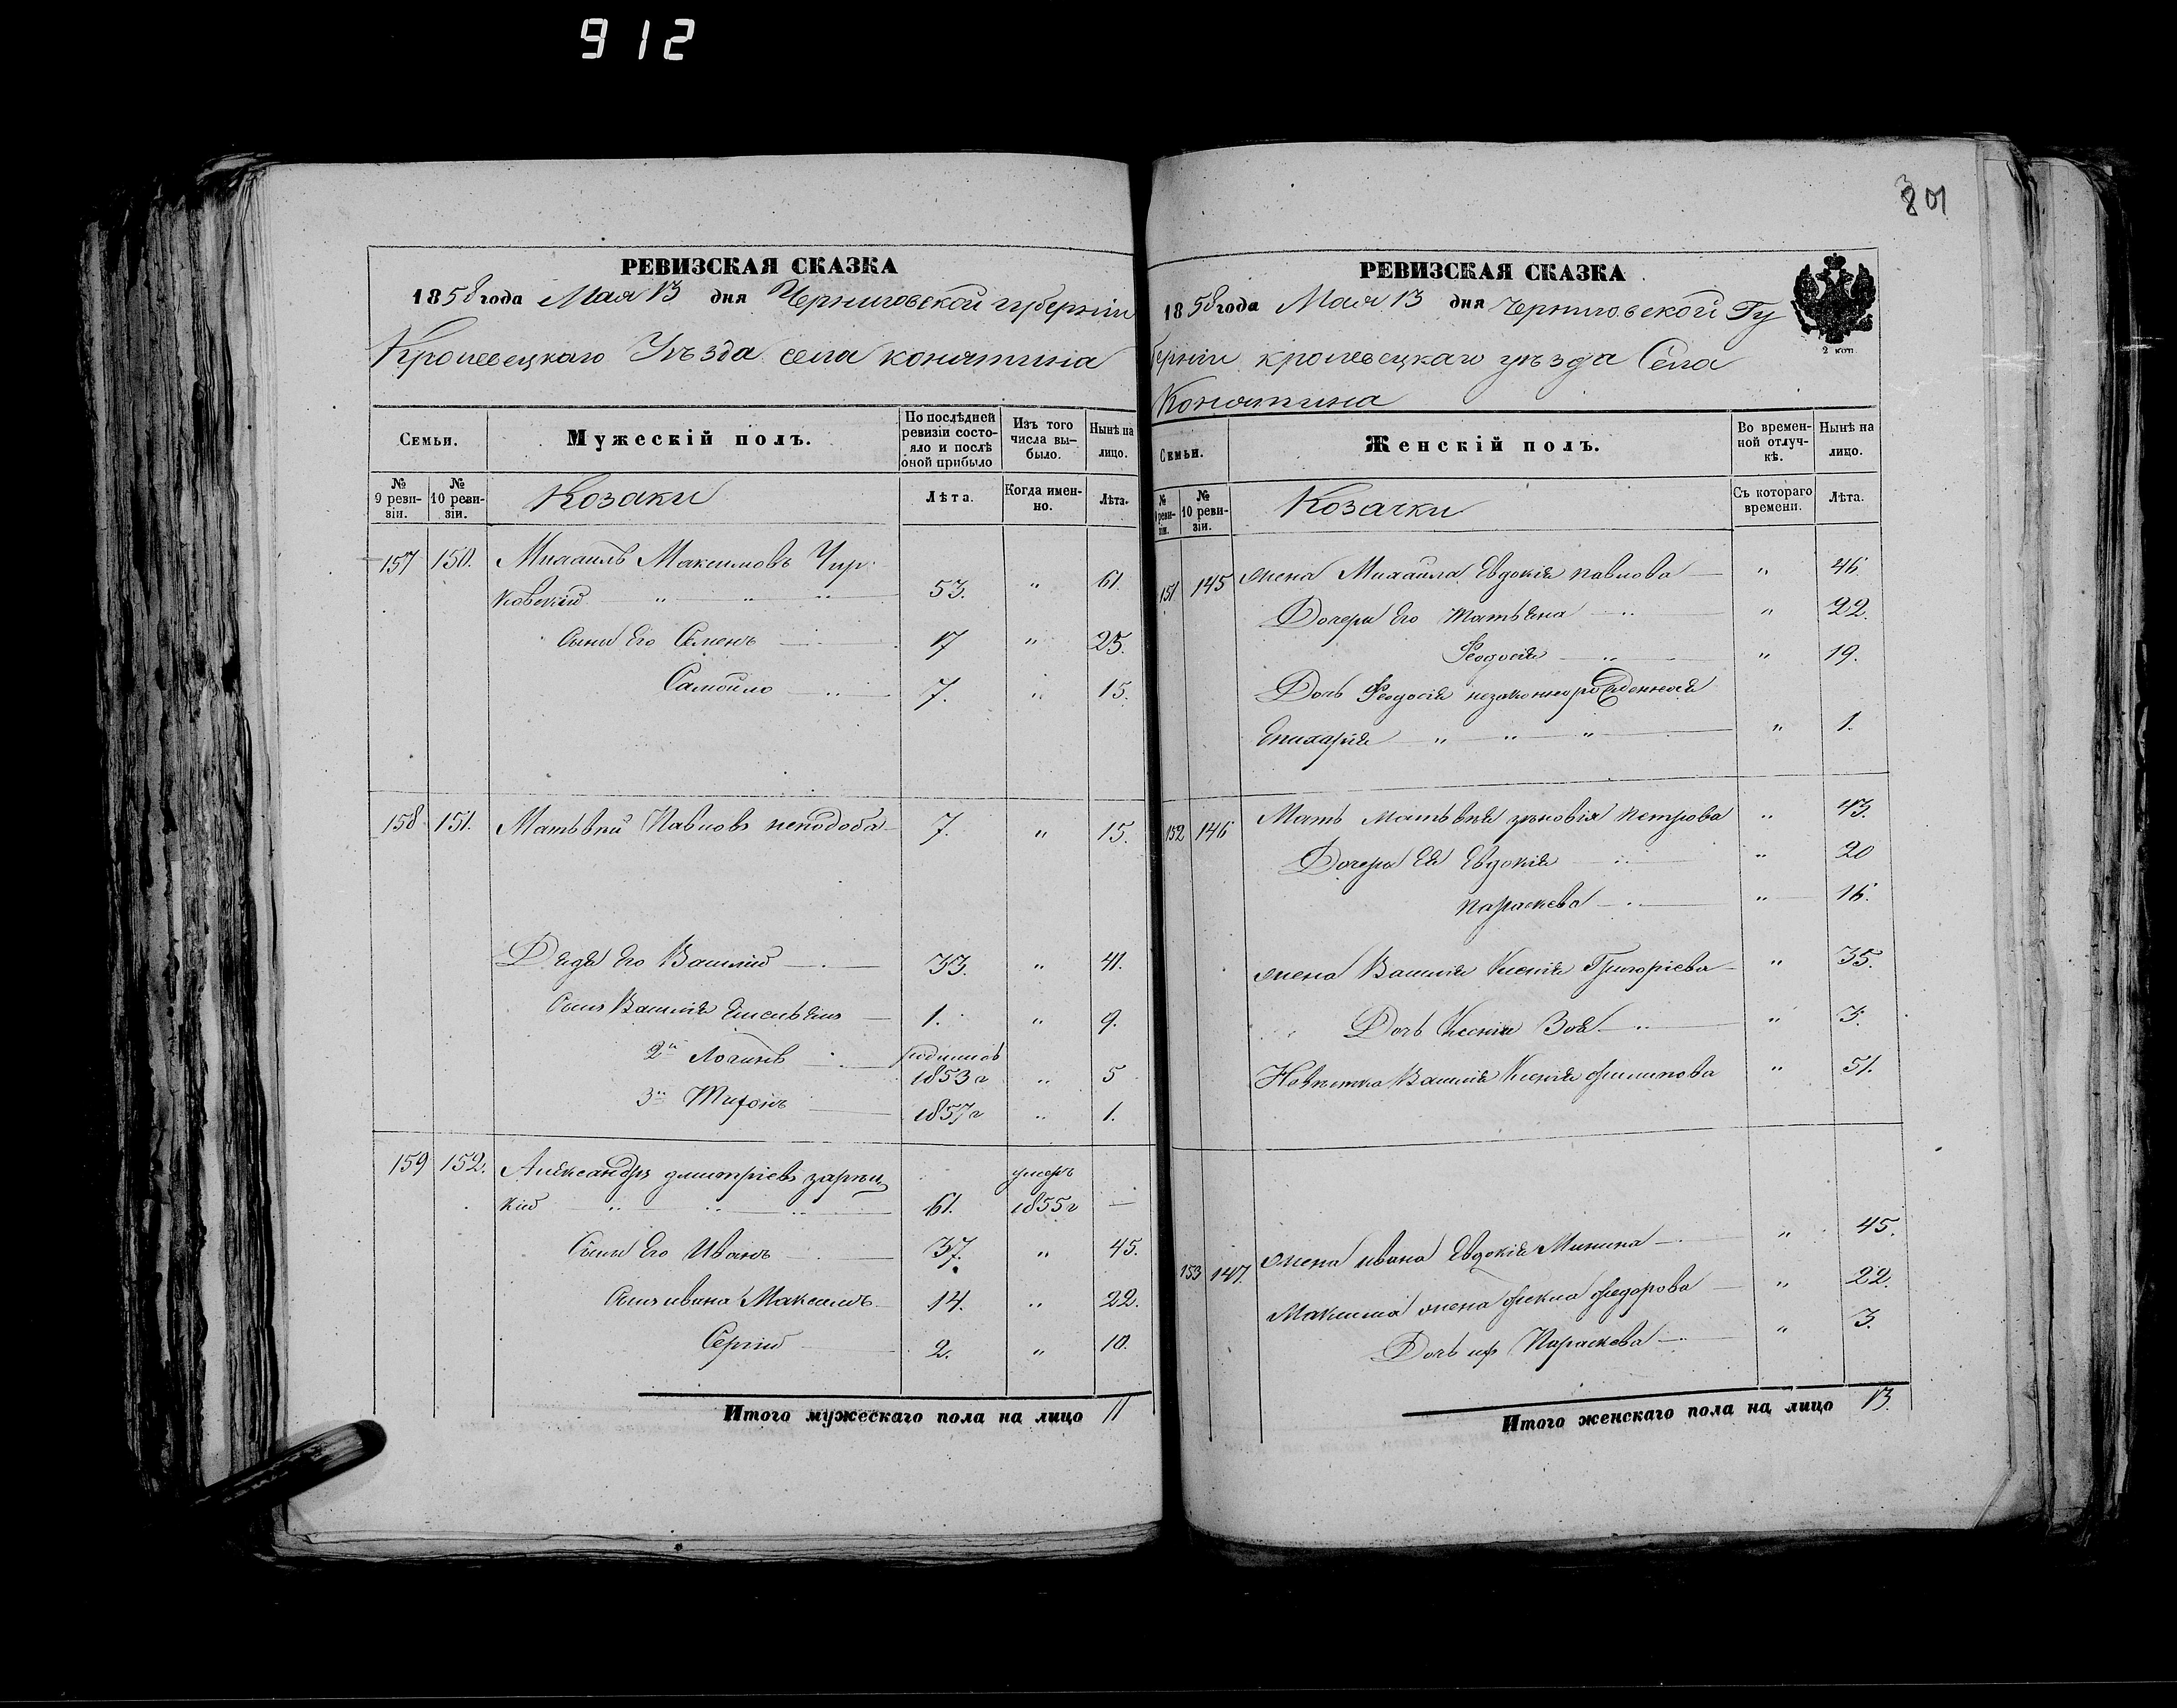 912
301
РЕВИЗСКАЯ СКАЗКА
1858 года Мая 13 дня Черниговской губерніи
Кролевецкаго Уѣзда села конятина
Семьи.
Мужескій полъ.
По послѣдней ревизіи состояло и послѣ оной прибыло
Изъ того числа выбыло.
Нынѣ на лицо.
№ 9 ревизіи.
№ 10 ревизіи.
Козаки
Лѣта.
Когда именно.
Лѣта.
157 150. Михаилъ Максимовъ Чир
ковскій " " " 53. " 61.
Сыни Его Семенъ 17 " 25.
Самойло 7. " 15.
158 151. Матвѣй Павловъ неподоба 7. " 15.
Дядя его Василій 33. " 41.
Сынъ Василія 1. " 9.
2й Логинъ родился
1853 г " 5
3й Тифонъ 1857 г " 1.
159 152. Александръ дмитріевъ зарѣц умеръ
кій " " " 61. 1855 г —
Сынъ Его Иванъ 37. " 45.
Сынъ ивана Максимъ 14. " 22.
Сергій 2. " 10.
Итого мужескаго пола на лицо 11
РЕВИЗСКАЯ СКАЗКА
1858 года Мая 13 дня Черниговской Гу
берніи кролевецкаго уѣзда Села
Конятина
2 коп.
Семьи.
Женскій полъ.
Во временной отлучкѣ.
Нынѣ на лицо.
№ 9 ревизіи.
№ 10 ревизіи.
Козачки
Съ котораго времени.
Лѣта.
151 145 жена Михаила Евдокія павлова " 46.
Дочери Его Татьяна " " 22.
Феодосія " " 19.
Дочь Феодосіи незаконнорожденная
Епихарія " " " " 1.
152 146 Мать матвѣя зѣновія Петрова " 43.
Дочери Ея Евдокія " " 20
Параскева " " 16.
жена Василія Ксенія Григоріева " 35.
Дочь Ксеніи Зоя " " 3.
Невѣстка Василія Ксенія филипова " 51.
153 147. жена ивана Евдокія Минина " 45.
Максима жена фекла федорова " 22.
Дочь их Параскева " 3.
Итого женскаго пола на лицо 13.